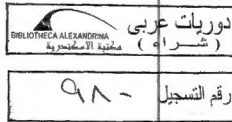 دوريات عربى
( شـــراء )
BIBLIOTHECA ALEXANDRINA
مكتبة الاسكندرية
رقم التسجيل ٩٨٠